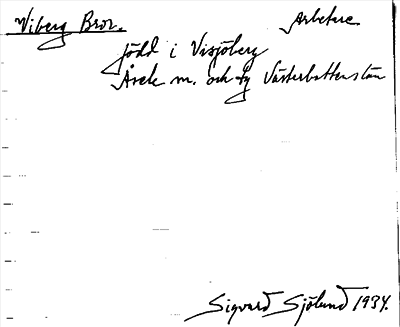 Viberg Bror. Arbetare
född i Visjöberg
Åsele m. och fg Västerbottenslän
Sigvard Sjölund 1934.